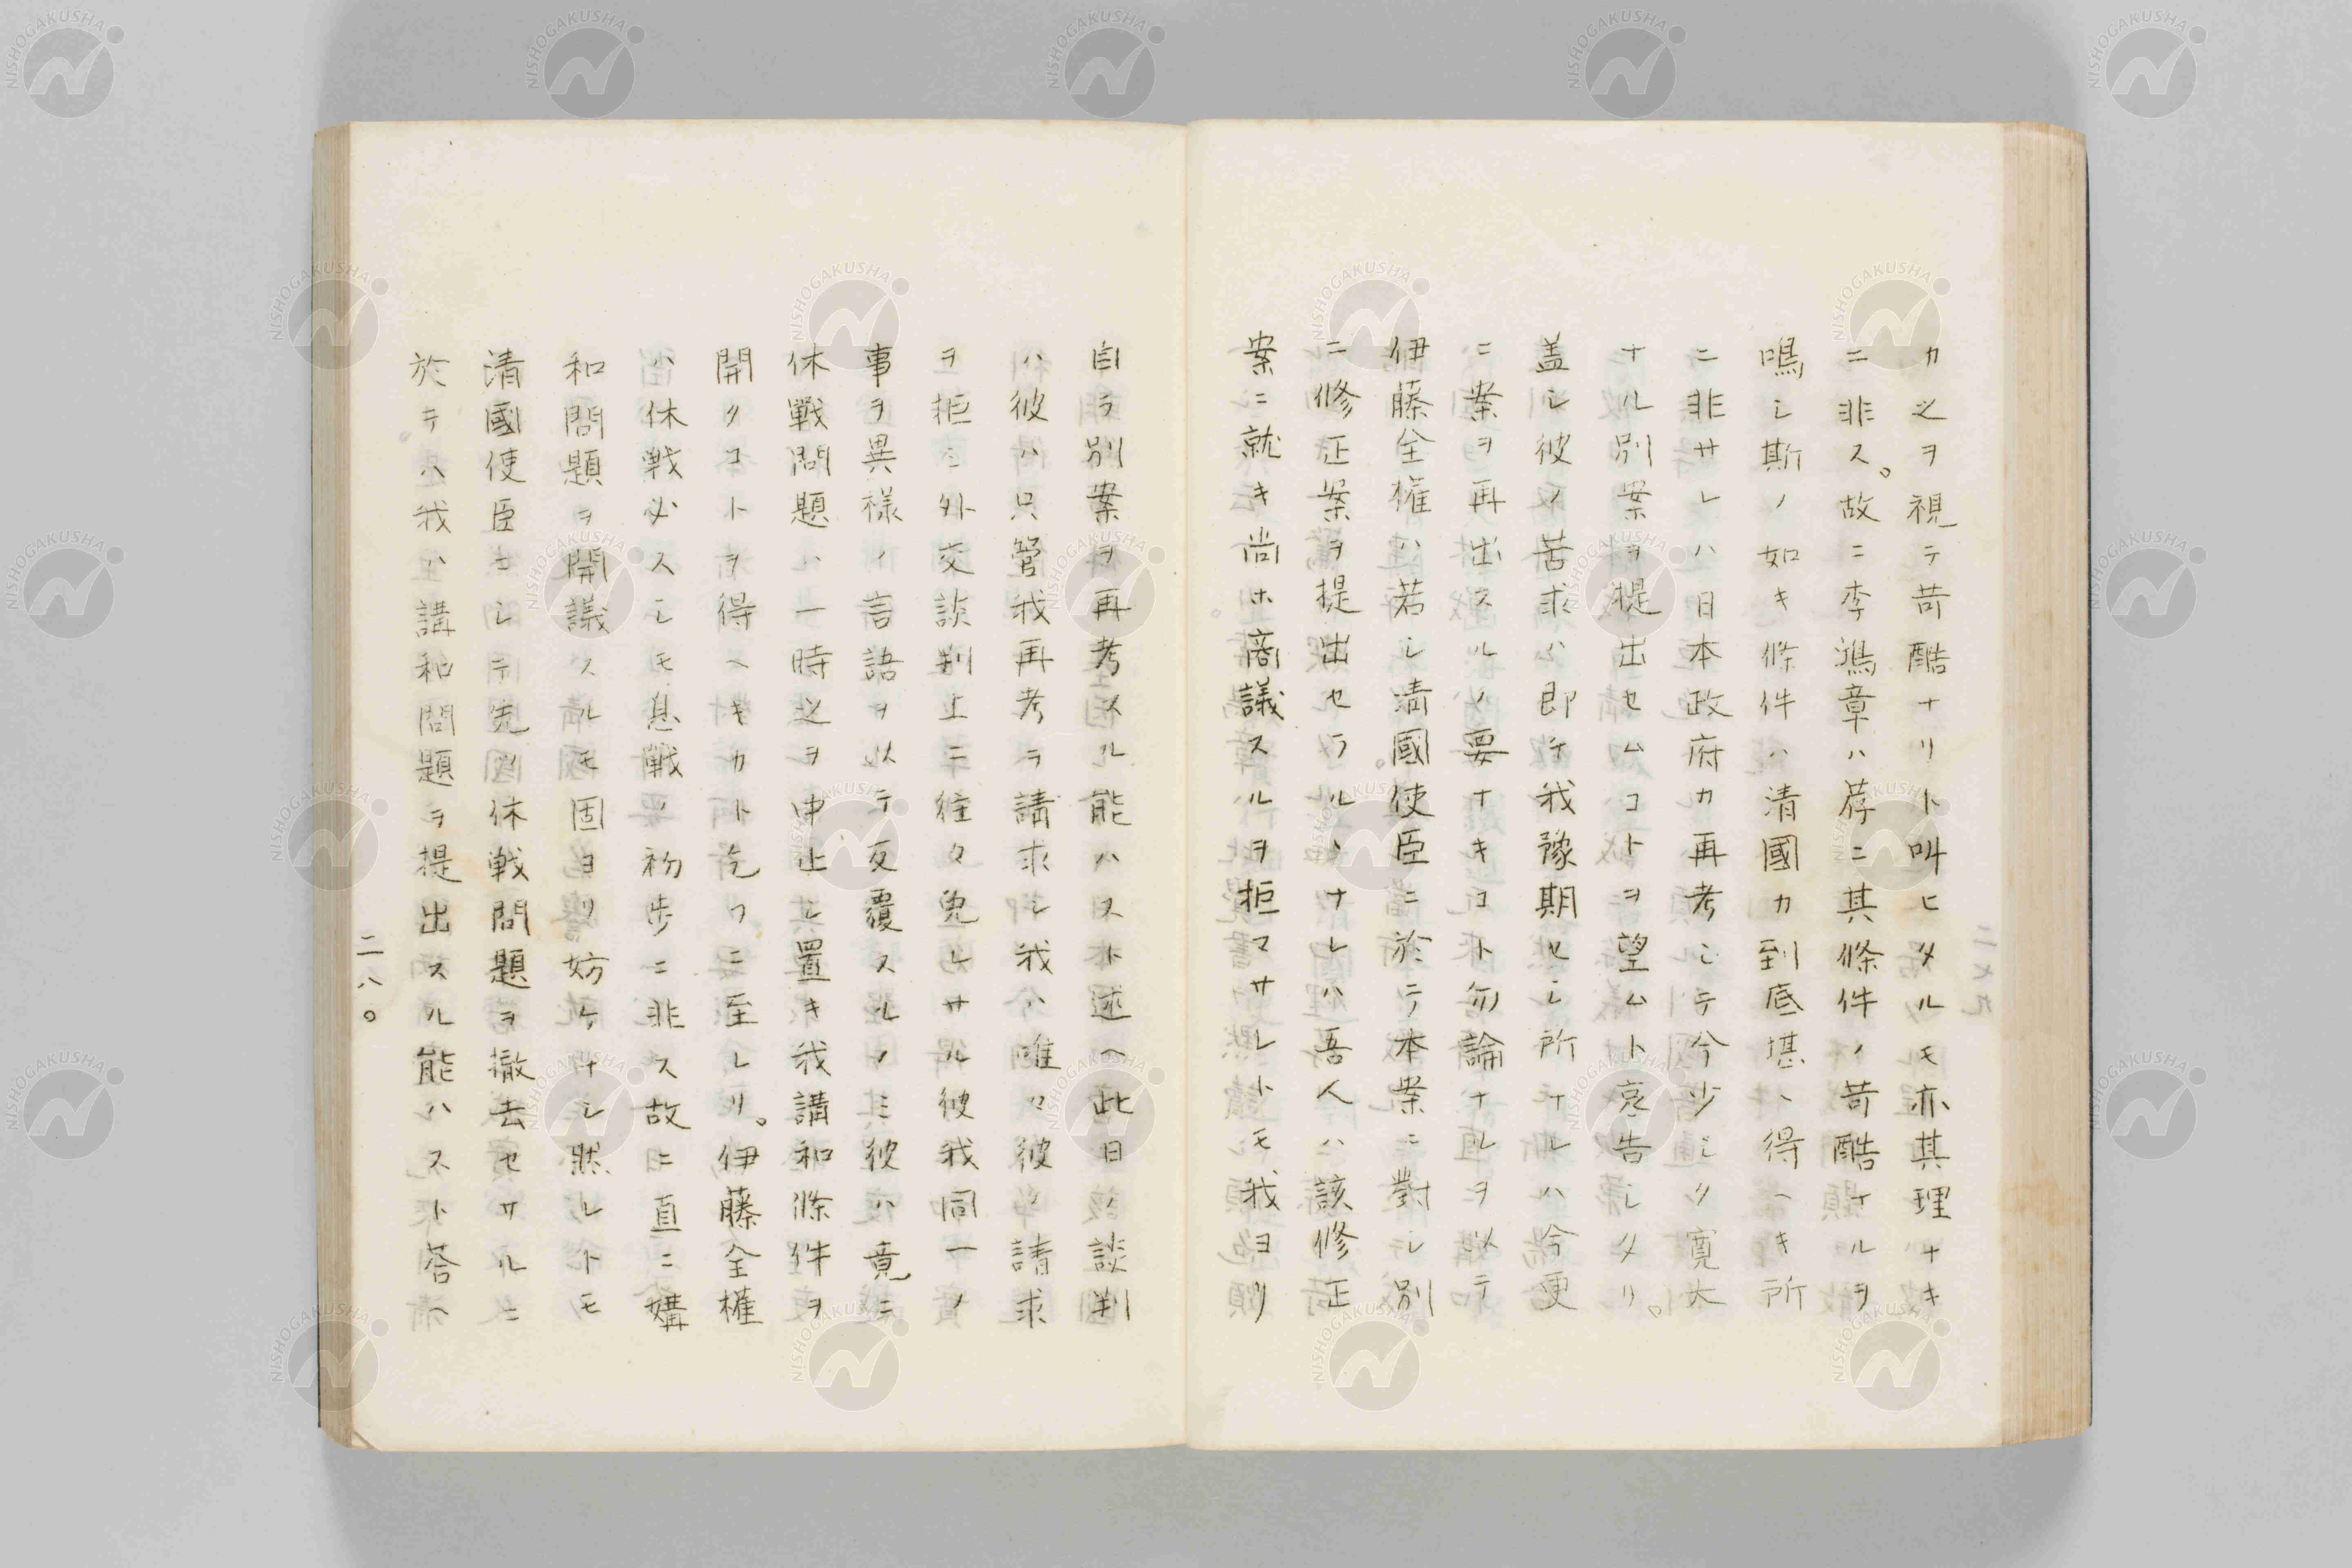 カ之ヲ視テ苛酷ナリト叫ヒタルモ亦其理ナキ
ニ非ス。故ニ李鴻章ハ荐ニ其條件ノ苛酷ナルヲ
鳴シ斯ノ如キ條件ハ清國カ到底堪ヘ得ヘキ所
ニ非サレハ日本政府カ再考シテ今少シク寛大
ナル別案ヲ提出セムコトヲ望ムト哀告シタリ。
盖シ彼ノ苦求ハ即チ我豫期セシ所ナルハ今更
ニ案ヲ再出スルノ要ナキコト勿論ナルヲ以テ
伊藤全権ハ若シ清國使臣ニ於テ本案ニ對シ別
ニ修正案ヲ提出セラルヽナレハ吾人ハ該修正
案ニ就キ尚ホ商議スルヲ拒マサレトモ我ヨリ
自ラ別案ヲ再考スル能ハスト述ヘ此日ノ談判
ハ彼ハ只管我再考ヲ請求シ我ハ唯々彼ノ請求
ヲ拒ミ外交談判上ニ往々免レサル彼我同一ノ
事ヲ異様ノ言語ヲ以テ反覆スルノミ彼ハ竟ニ
休戦問題ハ一時之ヲ中止シ置キ我講和條件ヲ
開クコトヲ得ヘキカト乞フニ至レリ。伊藤全権
ハ休戦必スシモ息戦ノ初歩ニ非ス故ニ直ニ媾
和問題ヲ開議スルモ固ヨリ妨ケナシ然レトモ
清國使臣ニシテ先ツ休戦問題ヲ撤去セサルニ
於テハ我ハ講和問題ヲ提出スル能ハスト荅ヘ
二八〇
二七九
NISHOGAKUSHA